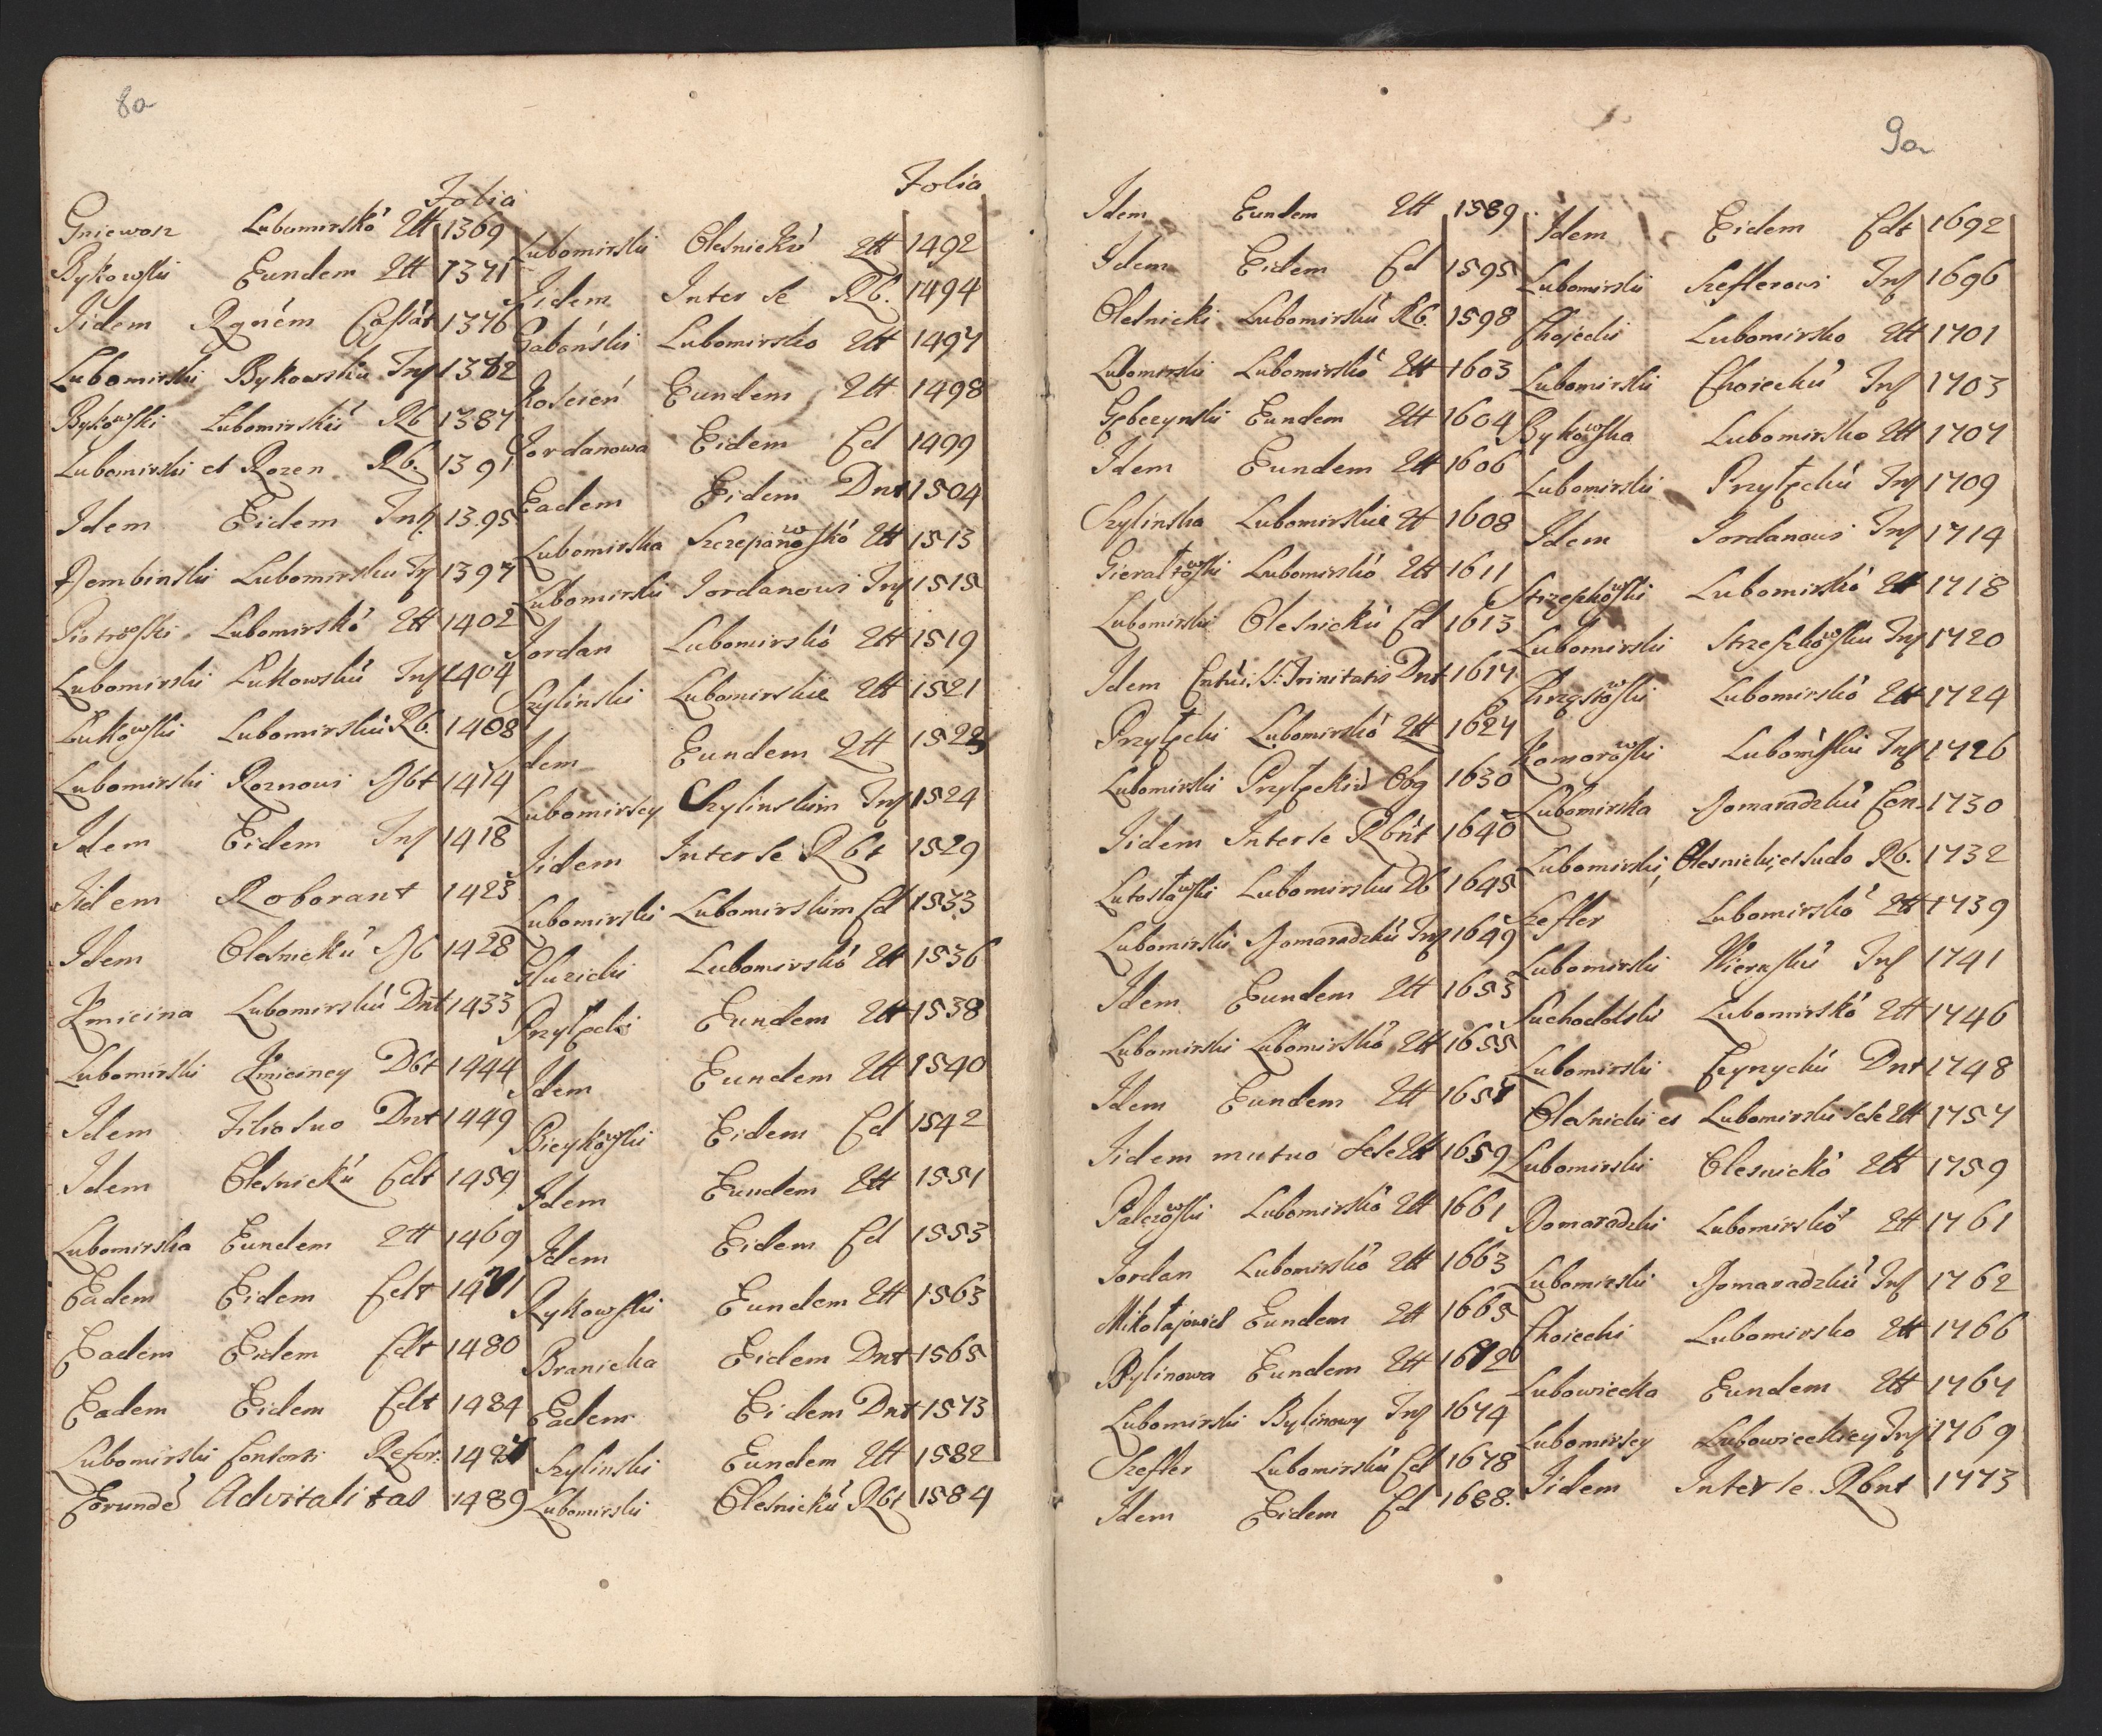 8a
Folia
Gniewosz Lubomirskó Qtt 1369
Bykowski Eundem Qtt 1371
Iidem Rgném Cassát 1376
Lubomirski Bykowskiu Inf 1382
Bykowski Lubomirskiú Rb 1387
Lubomirski et Rozen Rb. 1391
Idem Eidem Inf. 1395
Dembinski Lubomirskiu Inf 1397
Piotrowski Lubomirskó Qtt 1402
Lubomirski Łukowskiú Inf 1404
Łukowski Lubomirskiú Rb. 1408
Lubomirski Roznowi Obt 1414
Idem Eidem Inf 1418
Iidem Roborant 1423
Idem Olesnickiú Ob 1428
Kmicina Lubomirskiú Dnt 1433
Lubomirski Kmiciney Dbt 1444
Idem Filio suo Dnt 1449
Idem Olesnickú Cdt 1459
Lubomirska Eundem Qtt 1469
Eadem Eidem Cdt 1471
Eadem Eidem Cdt 1480
Eadem Eidem Cdt 1484
Lubomirski Consorti Refor: 1487
Eorundé Advitalitas 1489
Folia
Lubomirski Olesnickú Qtt 1492
Iidem Inter se Rb. 1494
Gabónski Lubomirsko Qtt 1497
Koscień Eundem Qtt 1498
Jordanowa Eidem Cd 1499
Eadem Eidem Dnt 1504
Lubomirska Szczepanowskó Qtt 1513
Lubomirski Iordanowi Inf 1515
Jordan Lubomirskó Qtt 1519
Szylinski Lubomirskie Qtt 1521
Idem Eundem Qtt
Lubomirscy Szylinskim Inf 1524
Iidem Inter se Rbt 1529
Lubomirski Lubomirskim Cd 1533
Głuzicki Lubomirskó Qtt 1536
Przyłęcki Eundem Qtt 1538
Idem Eundem Qtt 1540
Bieykowski Eidem Cd 1542
Idem Eundem Qtt 1551
Idem Eidem Cd 1553
Rykowski Eundem Qtt 1563
Branicka Eidem Dnt 1565
Eadem Eidem Dnt 1573
Szylinski Eundem Qtt 1582
Lubomirski Olesnickú Rbt 1584
9a
Idem Eundem Qtt 1589
Idem Eidem Cd 1595
Olesnicki Lubomirskiú Rb. 1598
Lubomirski Lubomirskó Qtt 1603
Gębczynski Eundem Qtt 1604
Idem Eundem Qtt 1606
Szylinska Lubomirskie Qt 1608
Gierałtowski Lubomirskó Qtt 1611
Lubomirski Olesnickú Cd 1613
Idem S: Trinitatis Dnt 1617
Przyłęcki Lubomirskó Qtt 1627
Lubomirski Przyłęckiú Obg 1630
Iidem Inter se Rbńt 1640
Lutosławski Lubomirskiu Db 1645
Lubomirski Domaradzkiú Inf 1649
Idem Eundem Qtt 1653
Lubomirski Lubomirskó Qtt 1655
Idem Eundem Qtt 1657
Iidem mutuo sese Qtt 1659
Palczowski Lubomirskó Qtt 1661
Jordan Lubomirskó Qtt 1663
Mikołajowicz Eundem Qtt 1665
Bylinowa Eundem Qtt 1672
Lubomirski Bylinowy Inf 1674
Szefler Lubomirskiú Cd 1678
Idem Eidem Cd 1688.
Idem Eidem Cdt 1692
Lubomirski Szeflerowi Inf 1696
Choiecki Lubomirsko Qtt 1701
Lubomirski Choieckú Inf 1703
Bykowska Lubomirsko Qtt 1707
Lubomirski Przyłęckú Inf 1709
Idem Jordanowi Inf 1714
Strzeszkowski Lubomirskó Qtt 1718
Lubomirski Strzeszkowskiu Inf 1720
Chrząstowski Lubomirskó Qtt 1724
Komorowski Lubomirskiu Inf 1726
Lubomirska Domaradzkiú Con. 1730
Lubomirski, Olesnicki, et Ludo Rb. 1732
Szefler Lubomirskó Qtt 1739
Lubomirski Inf 1741
Suchodolski Lubomirskó Qtt 1746
Lubomirski Dnt 1748
Olesnicki et Lubomirski sese Qtt 1757
Lubomirski Olesnickó Qtt 1759
Domaradzki Lubomirskó Qtt 1761
Lubomirski Domaradzkiú Inf 1762
Choiecki Lubomirsko Qtt 1766
Lubowiecka Eundem Qtt 1767
Lubomirscy Lubowieckiey Inf 1769
Iidem Inter se Rbnt 1773